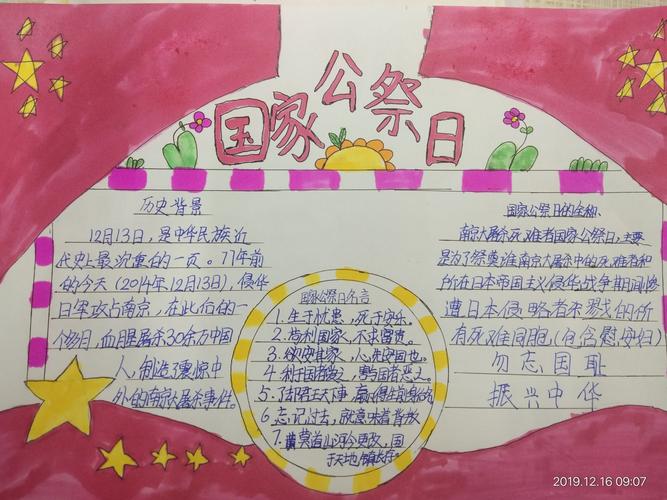 国家公祭日
历史背景
12月13日,是中华民族近
代史上最沉重的一页。77年前
的今天(2014年12月13日),侵华
日军攻占南京,在此后的一
个多月,血腥屠杀30余万中国
人,制造了震惊中
外的南京大屠杀事件。
国家公祭日名言
1.生于忧患,死于安乐。
2.苟利国家,不求富贵。
3.欲安其家,必先安国也。
4.利于国者爱之,害于国者恶之。
5.了却君王天下事,赢得生前身后名
6.忘记过去,就意味着背叛
7.莫道山河今更改,国
于天地镇长存。
国家公祭日的全称、
南京大屠杀死难者国家公祭日,主要
是为了祭奠南京大屠杀中的死难者和
所在日本帝国主义侵华战争期间惨
遭日本侵略者杀戮的所
有死难同胞,(包含慰安妇)
勿忘国耻
振兴中华
2019.12.16 09:07